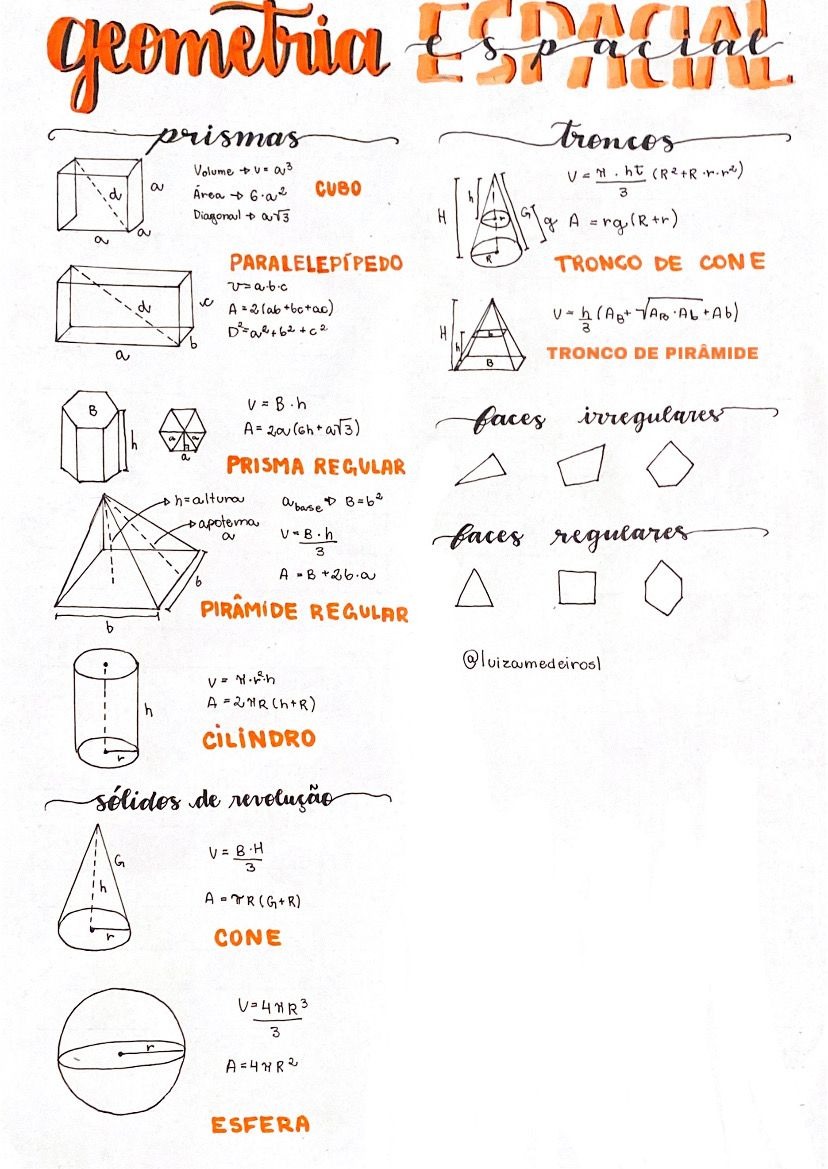 geometria ESPACIAL
espacial
prismas
d
a
a
a
Volume → V = a³
Área → 6·a²
Diagonal → a√3
CUBO
PARALELEPÍPEDO
d
c
b
a
V = a·b·c
A = 2(ab+bc+ac)
D² = a²+b²+c²
B
h
a
a
h
a
V = B·h
A = 2a(6h+a√3)
PRISMA REGULAR
h = altura
apótema
a
b
b
a base → B = b²
V = B·h/3
A = B+2b·a
PIRÂMIDE REGULAR
h
r
V = π·r²·h
A = 2πR(h+R)
CILINDRO
sólidos de revolução
G
h
r
V = B·H/3
A = πR(G+R)
CONE
r
V = 4πR³/3
A = 4πR²
ESFERA
troncos
H
h
r
G
g
R
V = π·ht/3 (R²+R·r·r²)
A = rg(R+r)
TRONCO DE CONE
H
h
b
B
V = h/3 (AB+√AB·Ab+Ab)
TRONCO DE PIRÂMIDE
faces irregulares
faces regulares
@luizamedeiros1